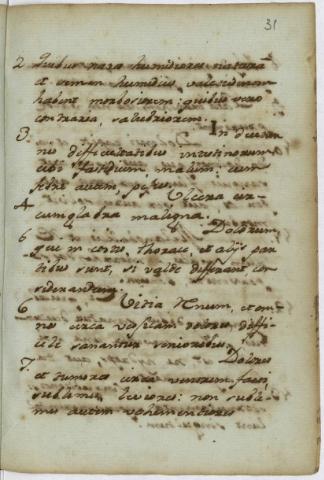 31
2 Quibus nares humidiores natura
et semen humidius, valetudinem
habent morbosiorem: quibus vero
contraria, salubriorem.
3. In
difficultatibus intestinorum
cibi fastidium, malum: cum
febre autem, pejus.
4. Ulcera cir-
cumglabra maligna.
5 Dolorum
que in costis, thorace, et alijs par
tibus sunt, si valde differant con
siderandum.
6 Vitia Renum, et om
nes circa vesicam dolores, diffi-
cile sanantur senioribus.
7. Dolores
et tumores circa ventrem facti,
sublimes, leviores: non subli-
mes autem vehementiores